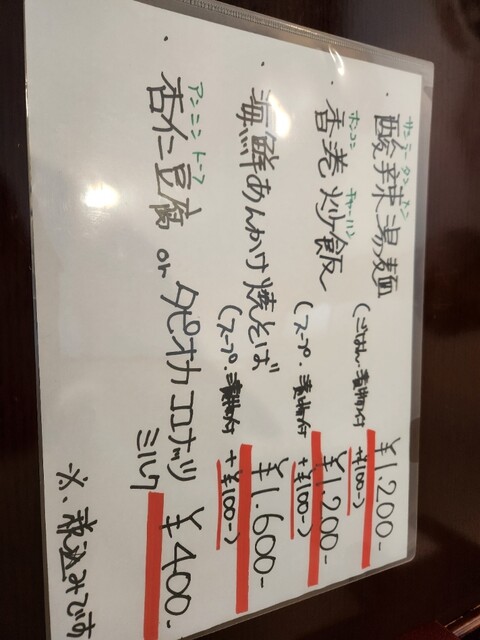 サンラータンメン
・酸辣湯麺 ¥1.200-
(ごはん・漬物付 +¥100-)
ホンコン チャーハン
・香港炒飯 ¥1.200-
(スープ・漬物付 +¥100-)
・海鮮あんかけ焼そば ¥1.600-
(スープ・漬物付 +¥100-)
アンニントーフ
・杏仁豆腐 or タピオカココナッツ
ミルク ¥400-
※、税込みです